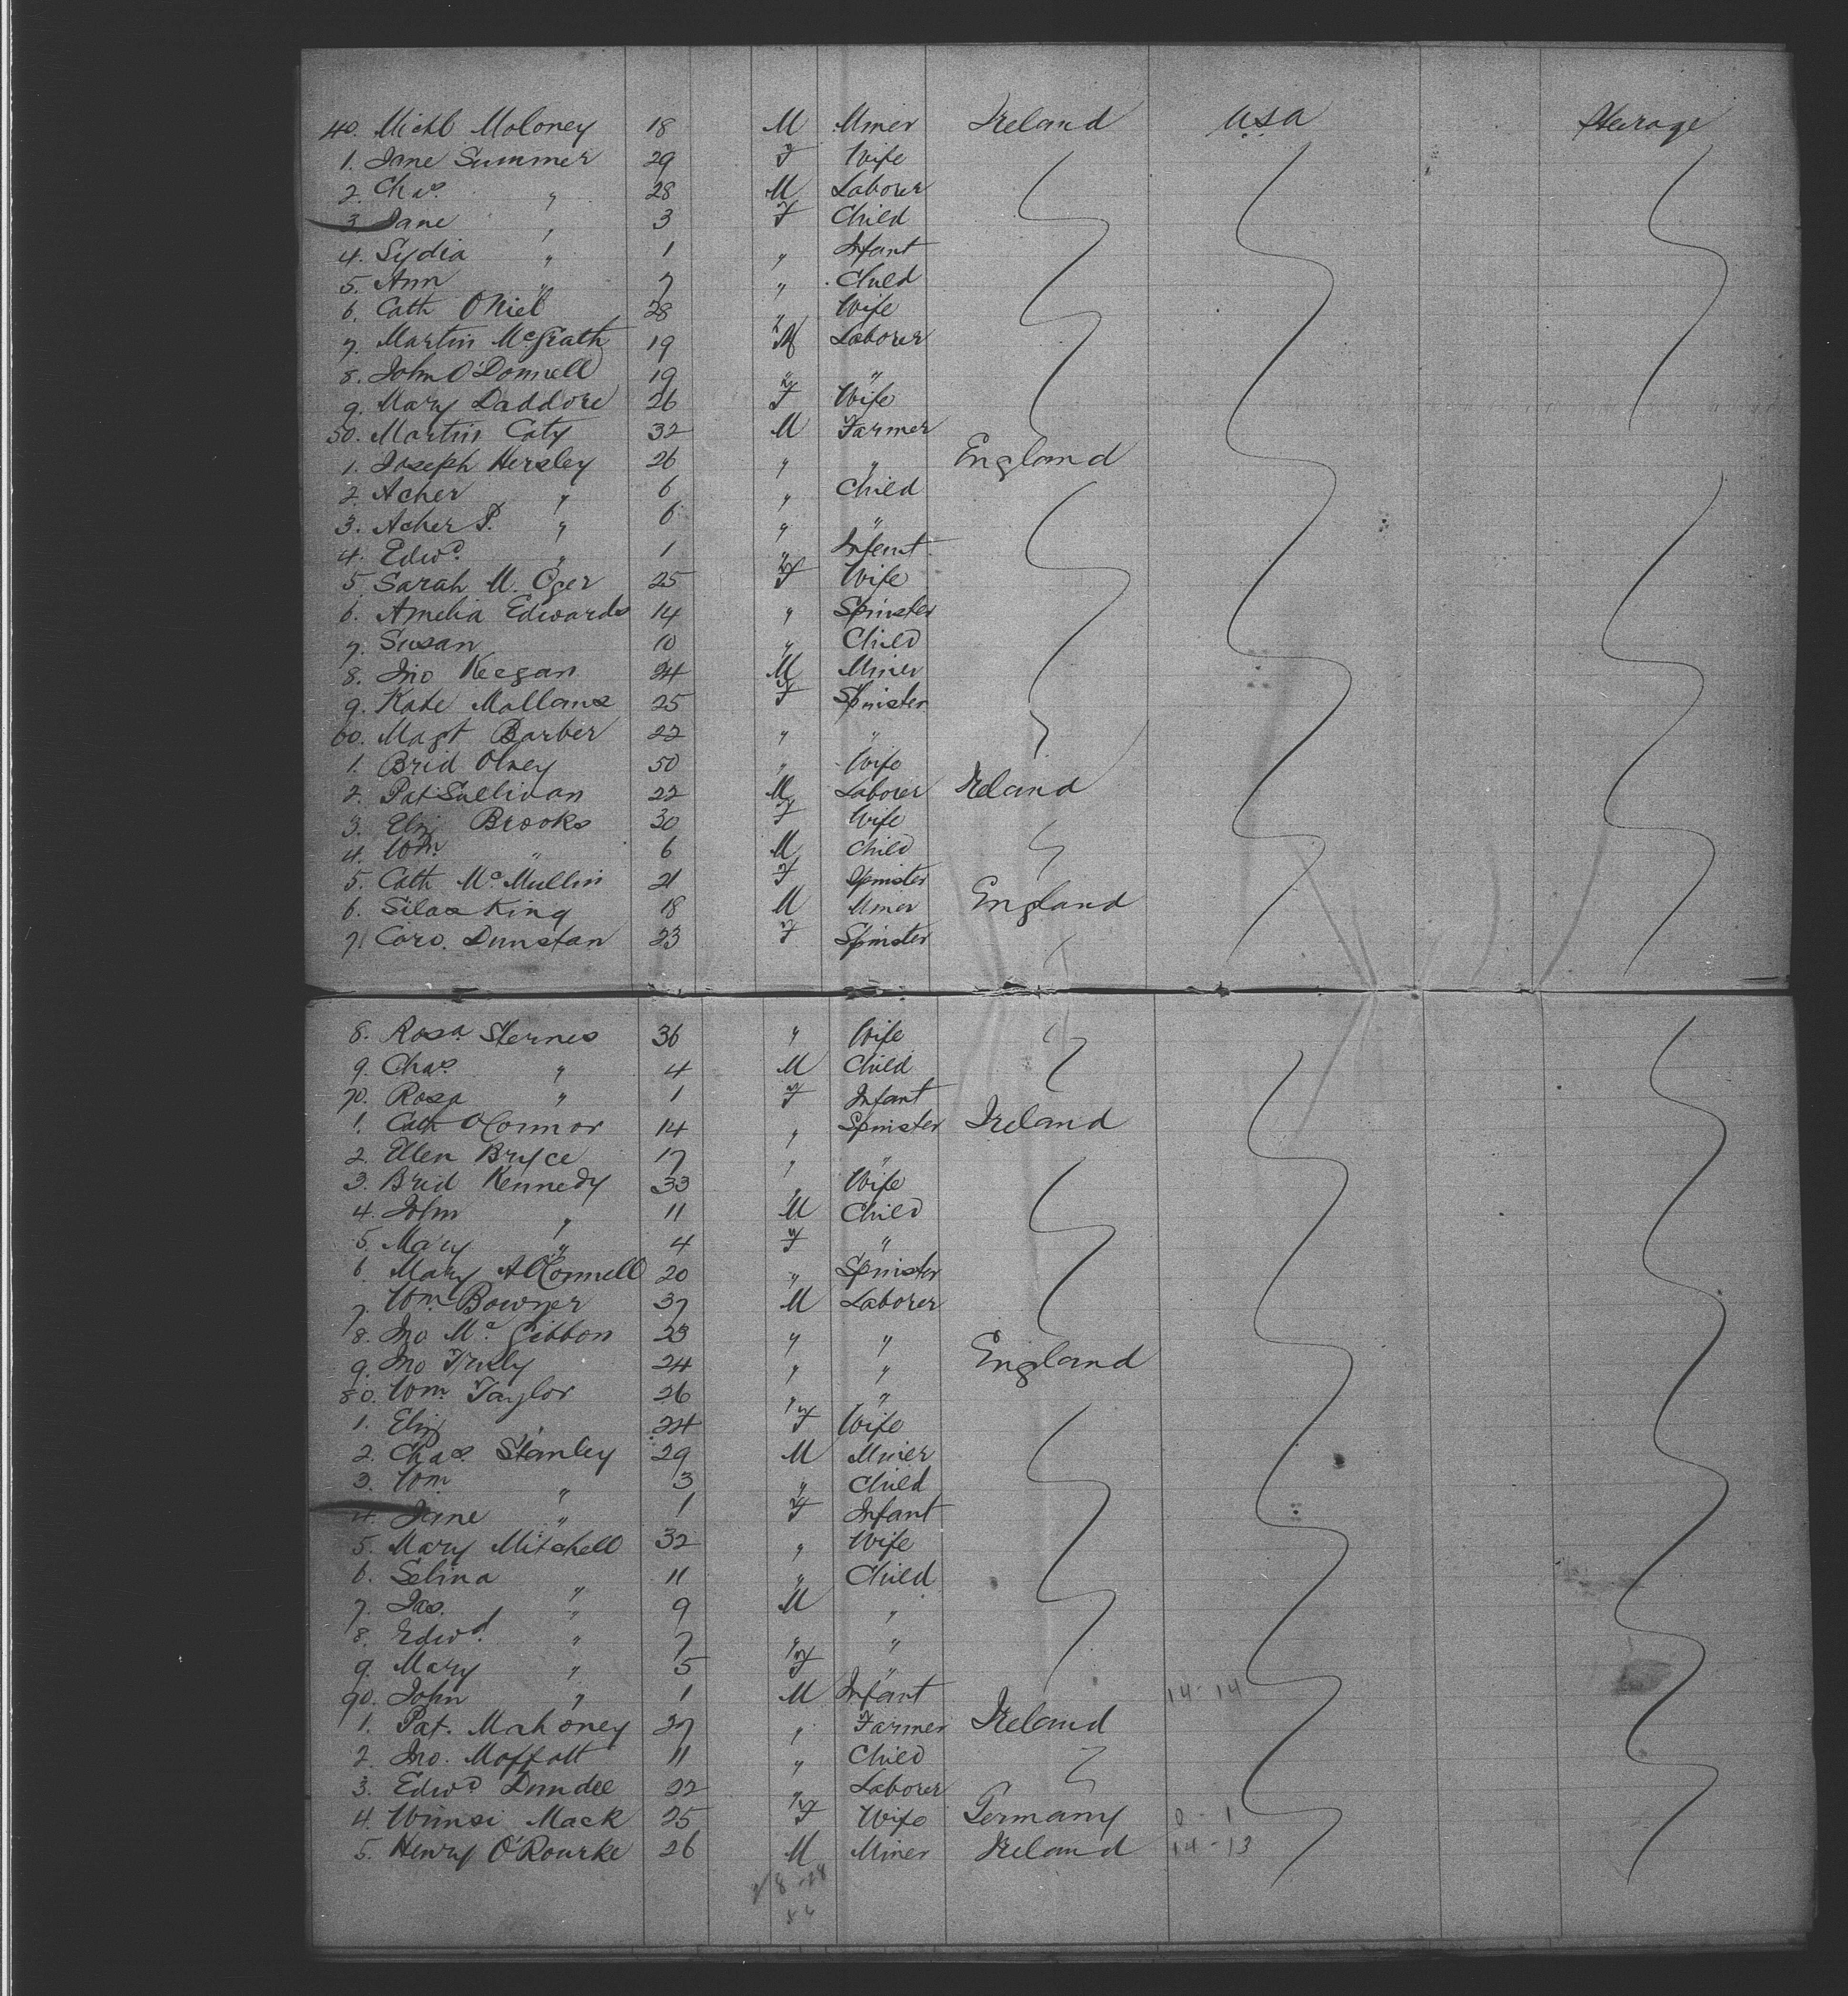 40. Michl Moloney 18 M Miner Ireland USA Steerage
1. Jane Summer 29 F Wife
2. Chas. " 28 M Laborer
3. Jane " 3 F Child
4. Lydia " 1 " Infant
5. Ann " 7 " Child
6. Cath O'Niel 28 " Wife
7. Martin McGrath 19 M Laborer
8. John O'Donnell 19 " "
9. Mary Daddore 26 F Wife
50. Martin Caty 32 M Farmer
1. Joseph Hersley 26 " " England
2. Acher " 6 " Child
3. Acher P. " 6 " "
4. Edwd. " 1 " Infant
5. Sarah M. Oger 25 F Wife
6. Amelia Edwards 14 " Spinster
7. Susan 10 " Child
8. Jno Keegan 24 M Miner
9. Kate Mallams 25 F Spinster
60. Magt Barber 22 " "
1. Brid Olney 50 " Wife
2. Pat Sullivan 22 M Laborer Ireland
3. Eliz Brooks 30 F Wife
4. Wm. " 6 M Child
5. Cath McMullin 21 F Spinster
6. Silas King 18 M Miner England
7. Caro. Dunstan 23 F Spinster
8. Rosa Sternes 36 " Wife
9. Chas. " 4 M Child
70. Rosa " 1 F Infant
1. Cath O'Connor 14 " Spinster Ireland
2. Ellen Bryce 17 " "
3. Brid Kennedy 33 " Wife
4. John " 11 M Child
5. Mary " 4 F "
6. Mary A OConnell 20 " Spinster
7. Wm. Bowner 37 M Laborer
8. Jno Mc.Gibbon 23 " "
9. Jno Truly 24 " " England
80. Wm. Taylor 26 " "
1. Eliz 24 F Wife
2. Chas. Stanley 29 M Miner
3. Wm. " 3 " Child
4. Jane " 1 F Infant
5. Mary Mitchell 32 " Wife
6. Selina " 11 " Child
7. Jas. " 9 M "
8. Edwd. " 7 " "
9. Mary " 5 F "
90. John " 1 M Infant 14-14
1. Pat. Mahoney 27 " Farmer Ireland
2. Jno. Moffatt 11 " Child
3. Edwd Dundee 22 " Laborer
4. Winnsi Mack 25 F Wife Germany 0-1
5. Henry O'Rourke 26 M Miner Ireland 14-13